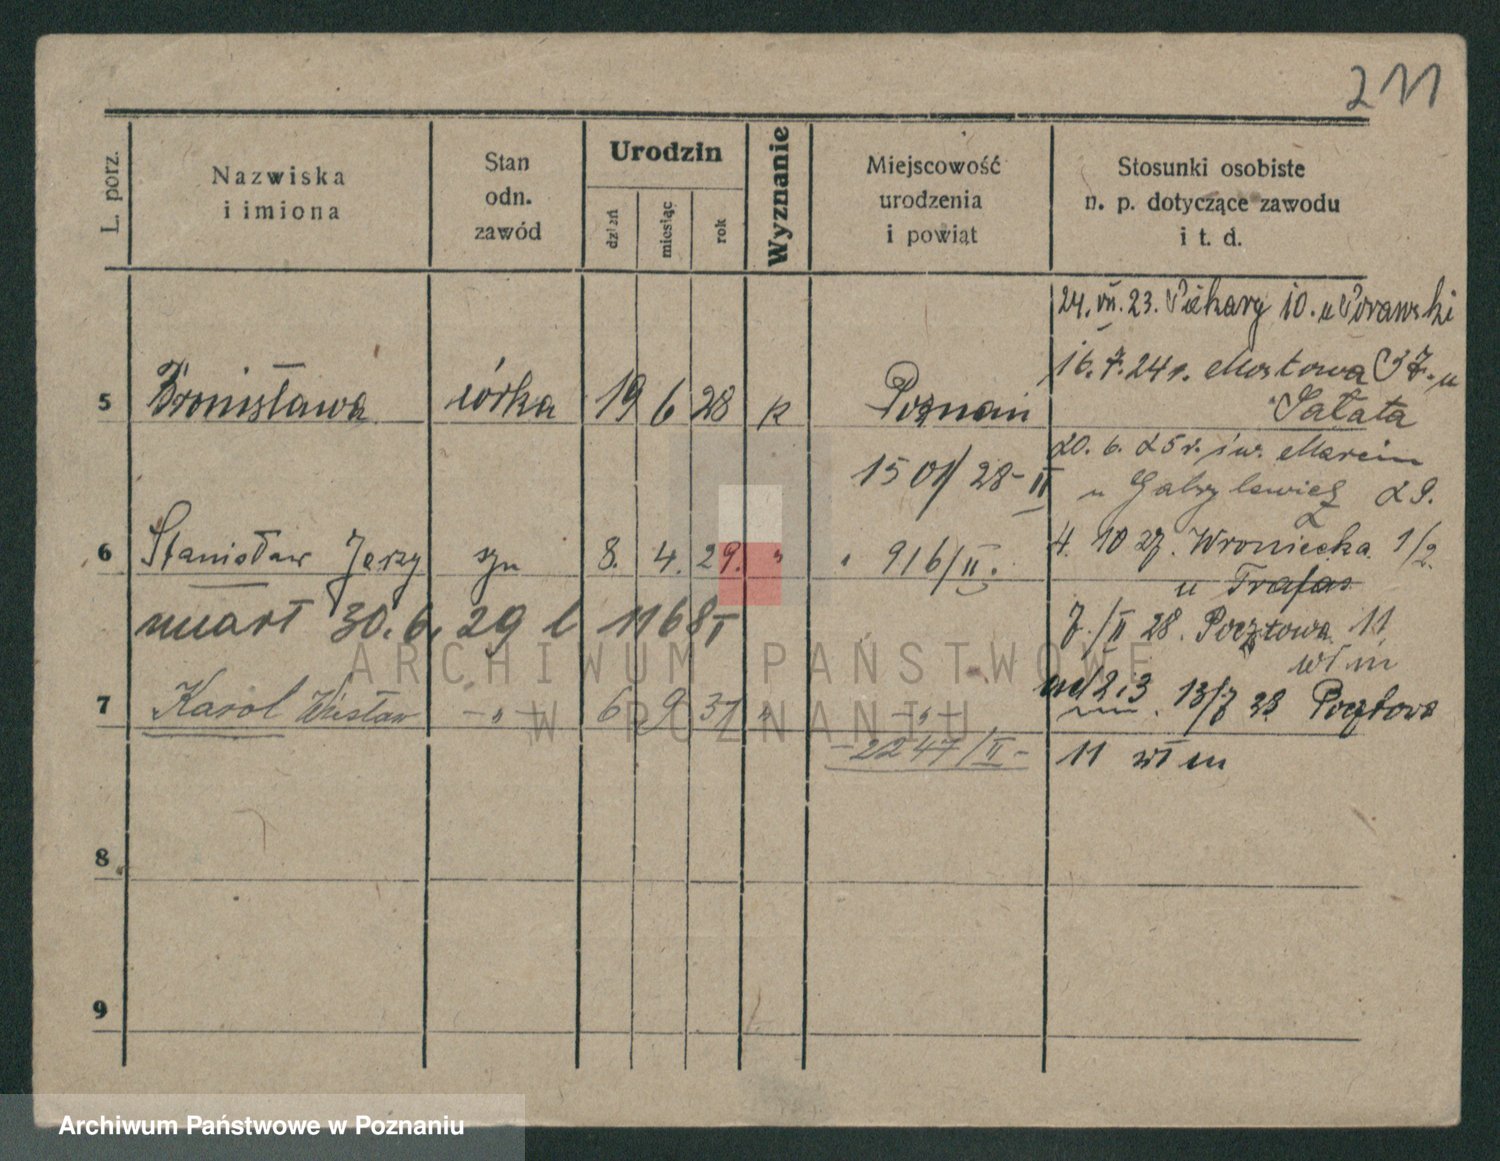 211
L. porz.
Nazwiska
i imiona
Stan
odn.
zawód
Urodzin
dzień
miesiąc
rok
Wyznanie
Miejscowość
urodzenia
i powiąt
Stosunki osobiste
n. p. dotyczące zawodu
i t. d.
24. VII. 23. Piekary 10. u Porawski
16. 7. 24 r. Mostowa 37. u
Sałata
5 Bronisława córka 19 6 28 k Poznań
1501/28-II
20. 6. 25 r. św. Marcin
u Gabrylewicz 29.
6 Stanisław Jerzy syn 8. 4. 29. " " 916/II.
4. 10 27. Wroniecka 1/2.
u Trafas
umarł 30. 6. 29 l 1168 I
7./II 28. Pocztowa 11
wł m
7 Karol Wiesław -"- 6 9 31 " -"-
2247/II-
od 2 i 3 13/7 28 Pocztowa
11 wł m
8
9
ARCHIWUM PAŃSTWOWE
W POZNANIU
Archiwum Państwowe w Poznaniu